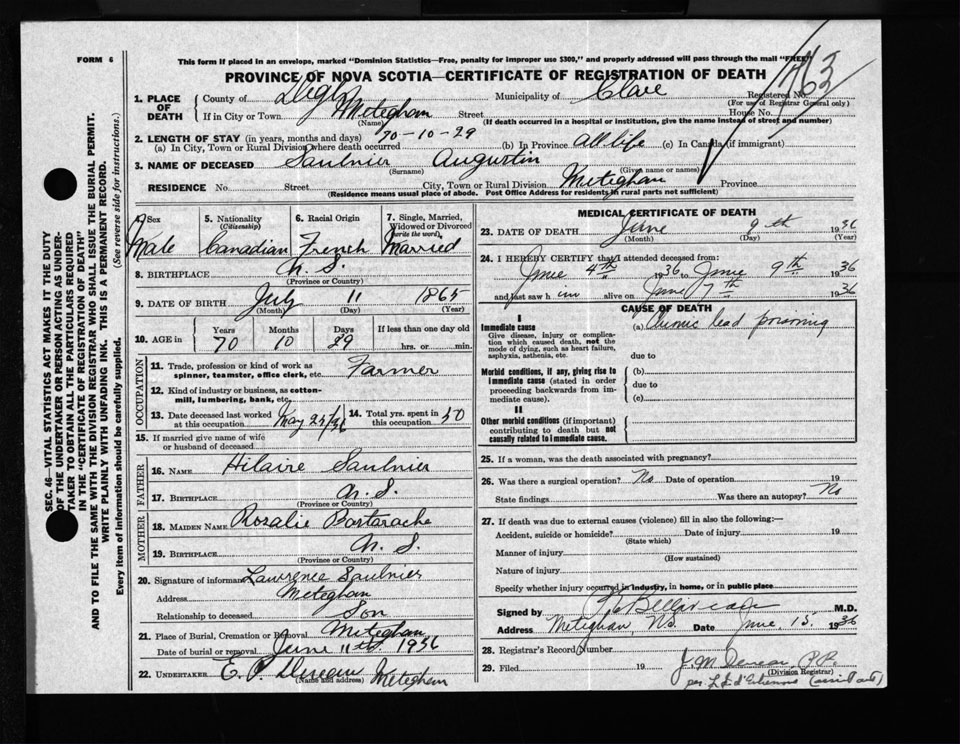 FORM 6
This form if placed in an envelope, marked "Dominion Statistics—Free, penalty for improper use $300," and properly addressed will pass through the mail "FREE"
PROVINCE OF NOVA SCOTIA—CERTIFICATE OF REGISTRATION OF DEATH
463
1. PLACE OF DEATH
County of Digby Municipality of Clare Registered No.
(For use of Registrar General only)
If in City or Town Meteghan Street House No.
(Name) (If death occurred in a hospital or institution, give the name instead of street and number)
2. LENGTH OF STAY (in years, months and days) 70-10-29
(a) In City, Town or Rural Division where death occurred (b) In Province All life (c) In Canada (if immigrant)
3. NAME OF DECEASED Saulnier Augustin
(Surname) (Given name or names)
RESIDENCE No. Street City, Town or Rural Division Meteghan Province
(Residence means usual place of abode. Post Office Address for residents in rural parts not sufficient)
4. Sex Male
5. Nationality (Citizenship) Canadian
6. Racial Origin French
7. Single, Married, Widowed or Divorced (write the word) Married
8. BIRTHPLACE N. S.
(Province or Country)
9. DATE OF BIRTH July 11 1865
(Month) (Day) (Year)
10. AGE in Years Months Days If less than one day old
70 10 29 hrs. or min.
OCCUPATION
11. Trade, profession or kind of work as spinner, teamster, office clerk, etc. Farmer
12. Kind of industry or business, as cotton-mill, lumbering, bank, etc.
13. Date deceased last worked at this occupation May 25/36
14. Total yrs. spent in this occupation 50
15. If married give name of wife or husband of deceased
FATHER
16. NAME Hilaire Saulnier
17. BIRTHPLACE N. S.
(Province or Country)
MOTHER
18. MAIDEN NAME Rosalie Bastarache
19. BIRTHPLACE N. S.
(Province or Country)
20. Signature of informant Lawrence Saulnier
Address Meteghan
Relationship to deceased Son
21. Place of Burial, Cremation or Removal Meteghan
Date of burial or removal June 11th 1936
22. UNDERTAKER E. P. Meteghan
(Name and address)
MEDICAL CERTIFICATE OF DEATH
23. DATE OF DEATH June 9th 1936
(Month) (Day) (Year)
24. I HEREBY CERTIFY that I attended deceased from:
June 4th 1936 to June 9th 1936
and last saw h im alive on June 7th 1936
CAUSE OF DEATH
I
Immediate cause (a) Chronic lead poisoning
Give disease, injury or complication which caused death, not the mode of dying, such as heart failure, asphyxia, asthenia, etc.
due to
Morbid conditions, if any, giving rise to immediate cause (stated in order proceeding backwards from immediate cause).
(b)
due to
(c)
II
Other morbid conditions (if important) contributing to death but not causally related to immediate cause.
25. If a woman, was the death associated with pregnancy?
26. Was there a surgical operation? No Date of operation 19
State findings Was there an autopsy? No
27. If death was due to external causes (violence) fill in also the following:—
Accident, suicide or homicide? Date of injury 19
(State which)
Manner of injury
(How sustained)
Nature of injury
Specify whether injury occurred in industry, in home, or in public place
Signed by Belliveau M.D.
Address Meteghan, N.S. Date June 15. 1936
28. Registrar's Record Number
29. Filed 19 J. M. P.P.
(Division Registrar)
per d'Entremont (assistant)
SEC. 46—VITAL STATISTICS ACT MAKES IT THE DUTY
OF THE UNDERTAKER OR PERSON ACTING AS UNDER-
TAKER TO OBTAIN ALL THE PARTICULARS REQUIRED
IN THE "CERTIFICATE OF REGISTRATION OF DEATH"
AND TO FILE THE SAME WITH THE DIVISION REGISTRAR WHO SHALL ISSUE THE BURIAL PERMIT.
WRITE PLAINLY WITH UNFADING INK. THIS IS A PERMANENT RECORD.
Every item of information should be carefully supplied. (See reverse side for instructions.)